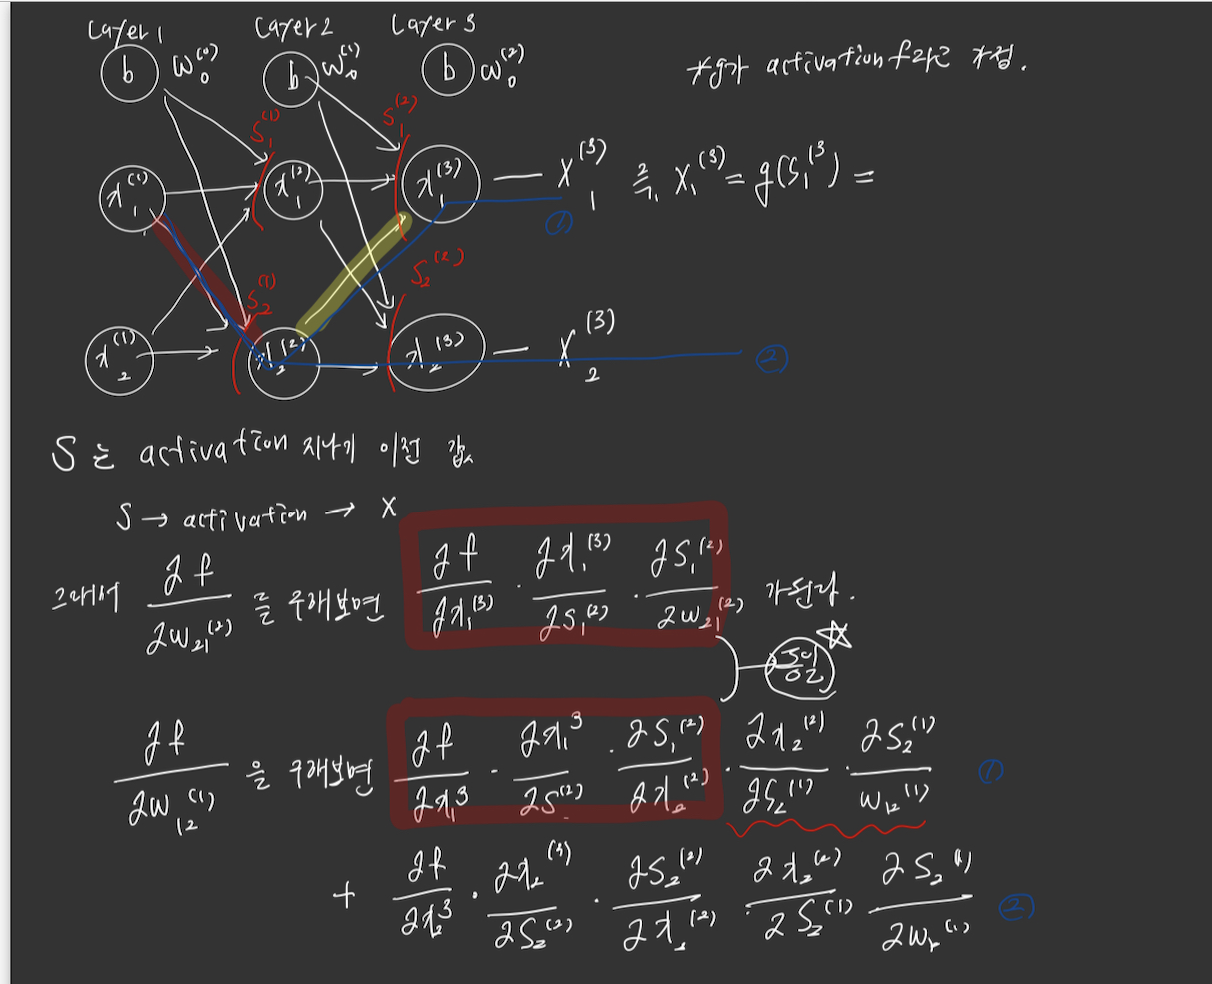 Layer 1 Layer 2 Layer 3
b w₀⁽⁰⁾ b w₀⁽¹⁾ b w₀⁽²⁾ *g가 activation f라고 가정.
S₁⁽¹⁾ S₁⁽²⁾
x₁⁽¹⁾ x₁⁽²⁾ x₁⁽³⁾ — X₁⁽³⁾ 즉, X₁⁽³⁾ = g(S₁⁽³) =
①
S₂⁽¹⁾ S₂⁽²⁾
x₂⁽¹⁾ x₂⁽²⁾ x₂⁽³⁾ — X₂⁽³⁾
②
S는 activation 지나기 이전 값
S → activation → X
그래서 ∂f/∂w₂₁⁽²⁾ 를 구해보면 ∂f/∂x₁⁽³⁾ · ∂x₁⁽³⁾/∂S₁⁽²⁾ · ∂S₁⁽²⁾/∂w₂₁⁽²⁾ 가된다.
동일 ☆
∂f/∂w₁₂⁽¹⁾ 을 구해보면 ∂f/∂x₁³ · ∂x₁³/∂S⁽²⁾ · ∂S₁⁽²⁾/∂x₂⁽²⁾ · ∂x₂⁽²⁾/∂S₂⁽¹⁾ · ∂S₂⁽¹⁾/w₁₂⁽¹⁾ ①
+ ∂f/∂x₂³ · ∂x₂⁽³⁾/∂S₂⁽²⁾ · ∂S₂⁽²⁾/∂x₂⁽²⁾ · ∂x₂⁽²⁾/∂S₂⁽¹⁾ ∂S₂⁽¹⁾/∂w₁₂⁽¹⁾ ②